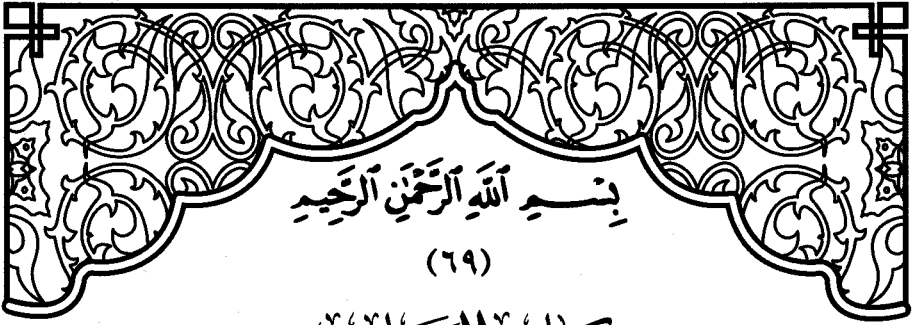 بِسْمِ ٱللَّهِ ٱلرَّحْمَٰنِ ٱلرَّحِيمِ
(٦٩)